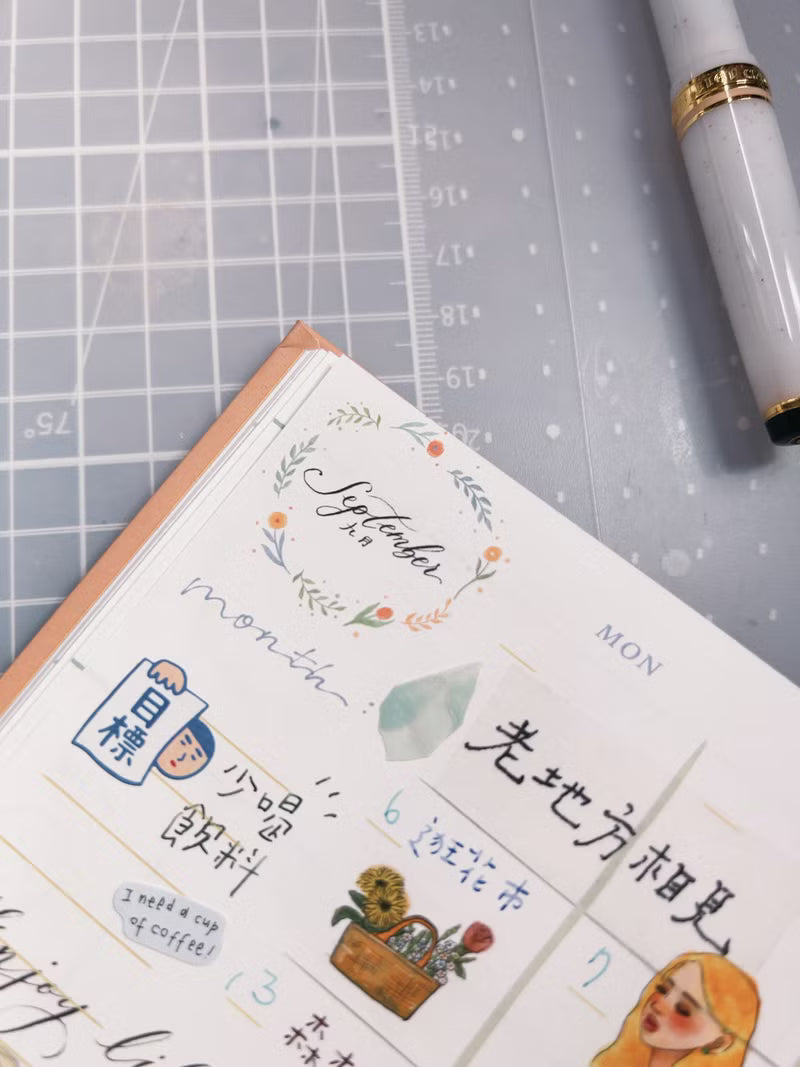 13
14
15
16
17
18
19
20
75°
September
九月
month
MON
目
標
少喝
飲料
老地方相見
6
逛花市
I need a cup
of coffee!
7
13
森
Enjoy